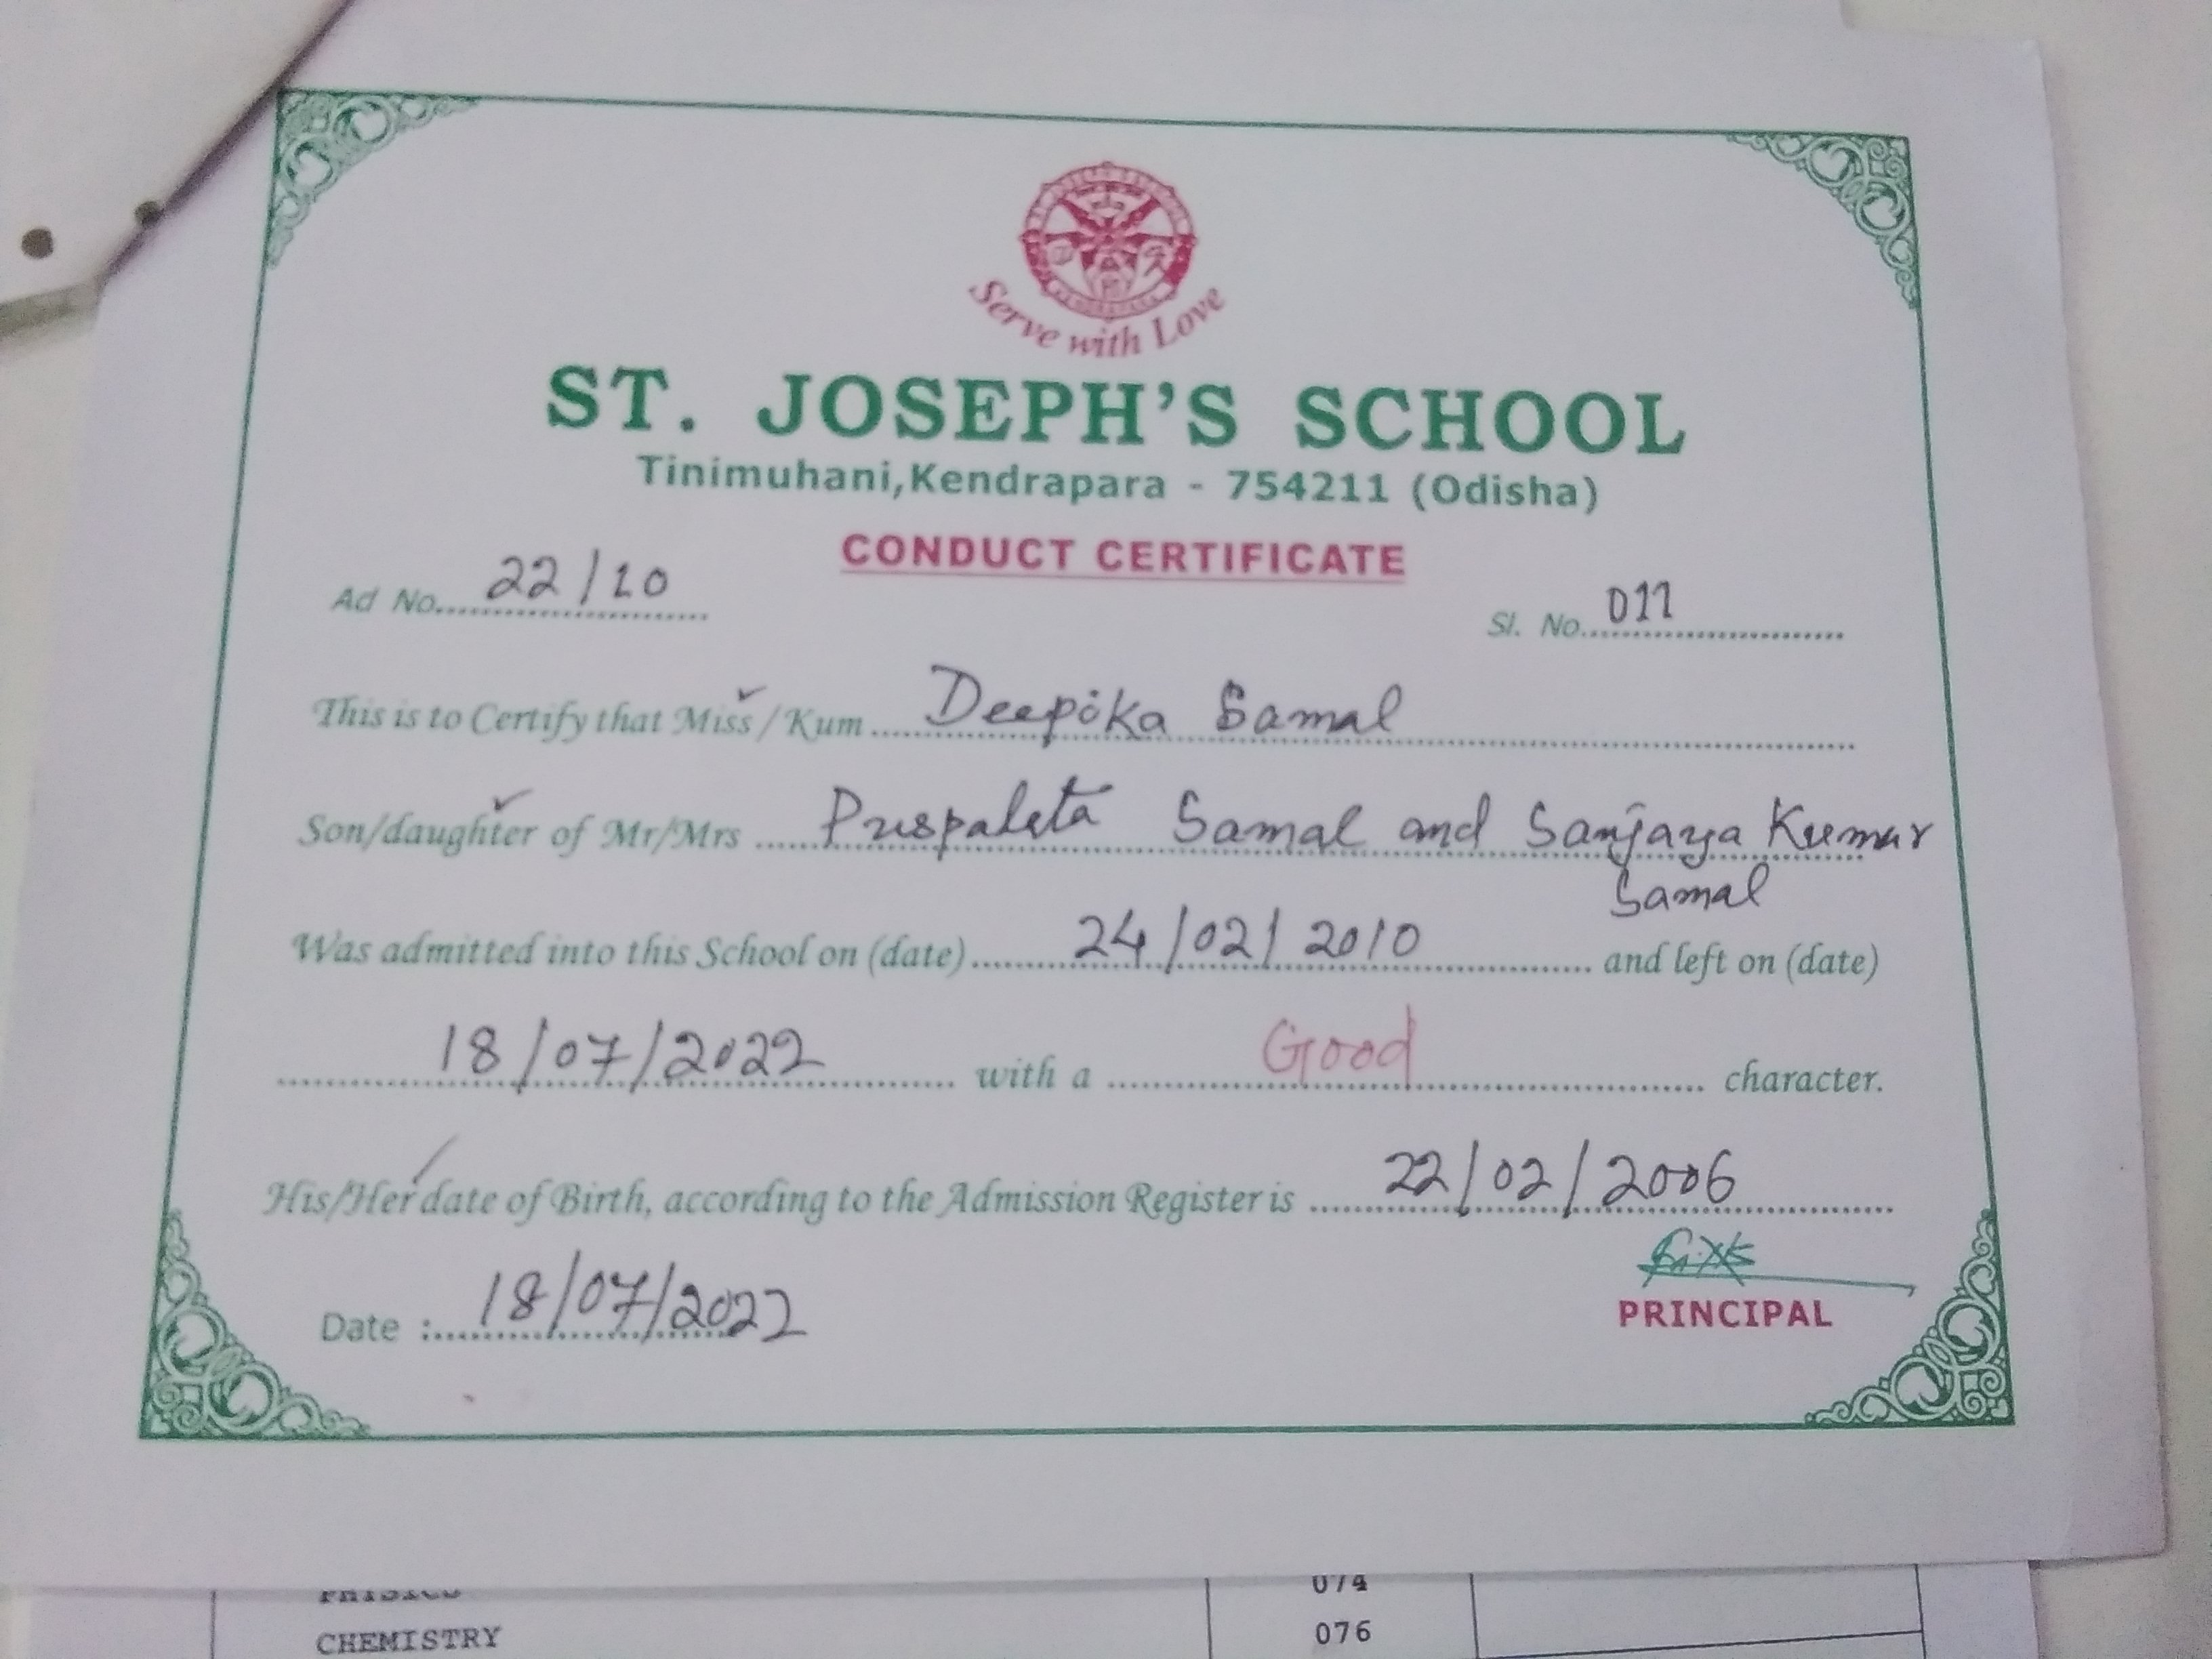 Serve with Love
ST. JOSEPH'S SCHOOL
Tinimuhani,Kendrapara - 754211 (Odisha)
CONDUCT CERTIFICATE
Ad No. 22/10
Sl. No. 011
This is to Certify that Miss / Kum Deepika Samal
Son/daughter of Mr/Mrs Puspalata Samal and Sanjaya Kumar
Samal
Was admitted into this School on (date) 24/02/2010 and left on (date)
18/07/2022 with a Good character.
His/Her date of Birth, according to the Admission Register is 22/02/2006
Date : 18/07/2022
PRINCIPAL
PHYSICS 074
CHEMISTRY 076